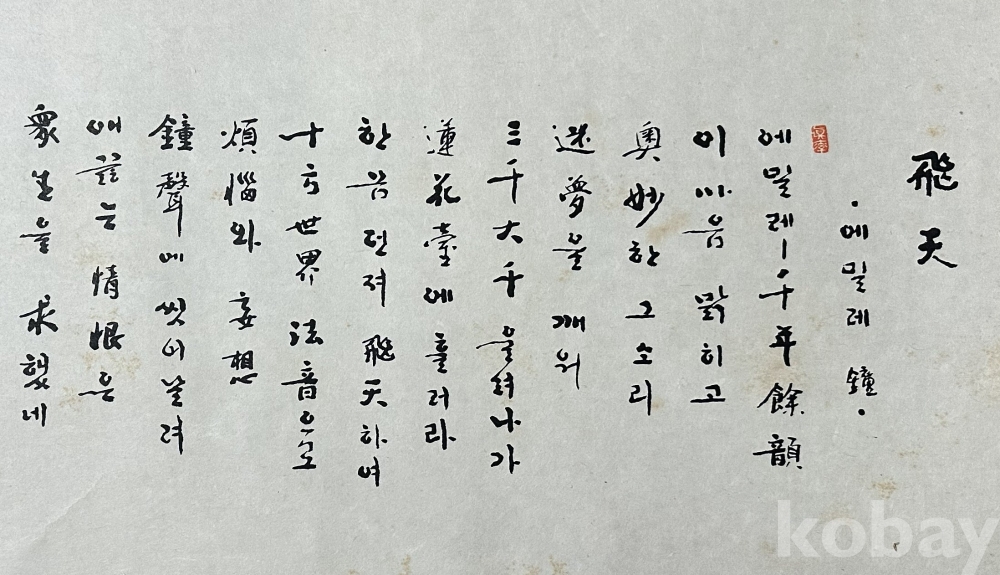 飛天
·에밀레 鐘·
에밀레ー千年餘韻
이 마음 맑히고
奧妙한 그 소리
迷夢을 깨워
三千大千 울려나가
蓮花臺에 흘러라
한 몸 던져 飛天하여
十方世界 法音으로
煩惱와 妄想
鐘聲에 씻어 날려
애끓는 情恨은
衆生을 求했네
kobay